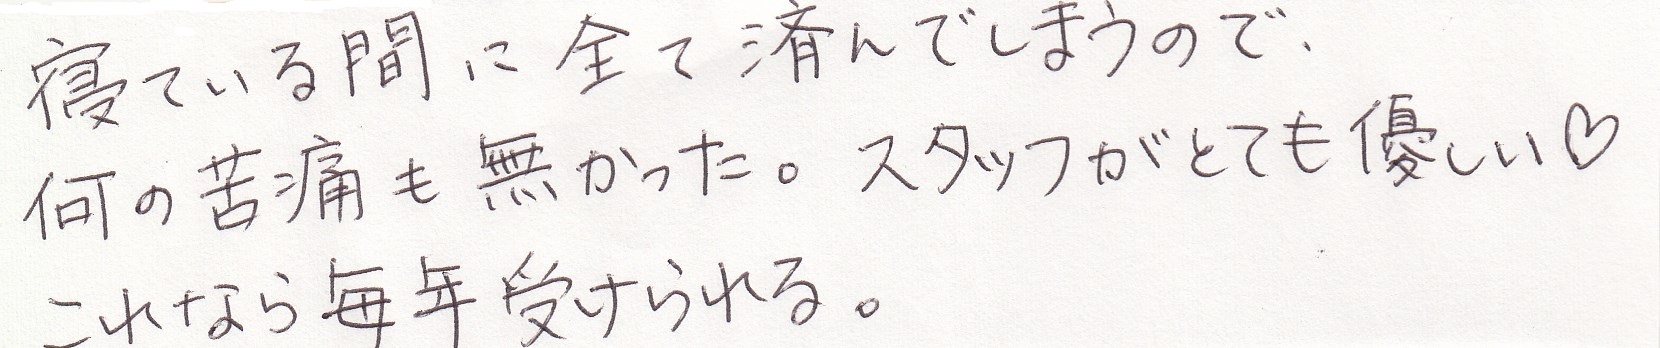 寝ている間に全て済んでしまうので、
何の苦痛も無かった。スタッフがとても優しい♡
これなら毎年受けられる。